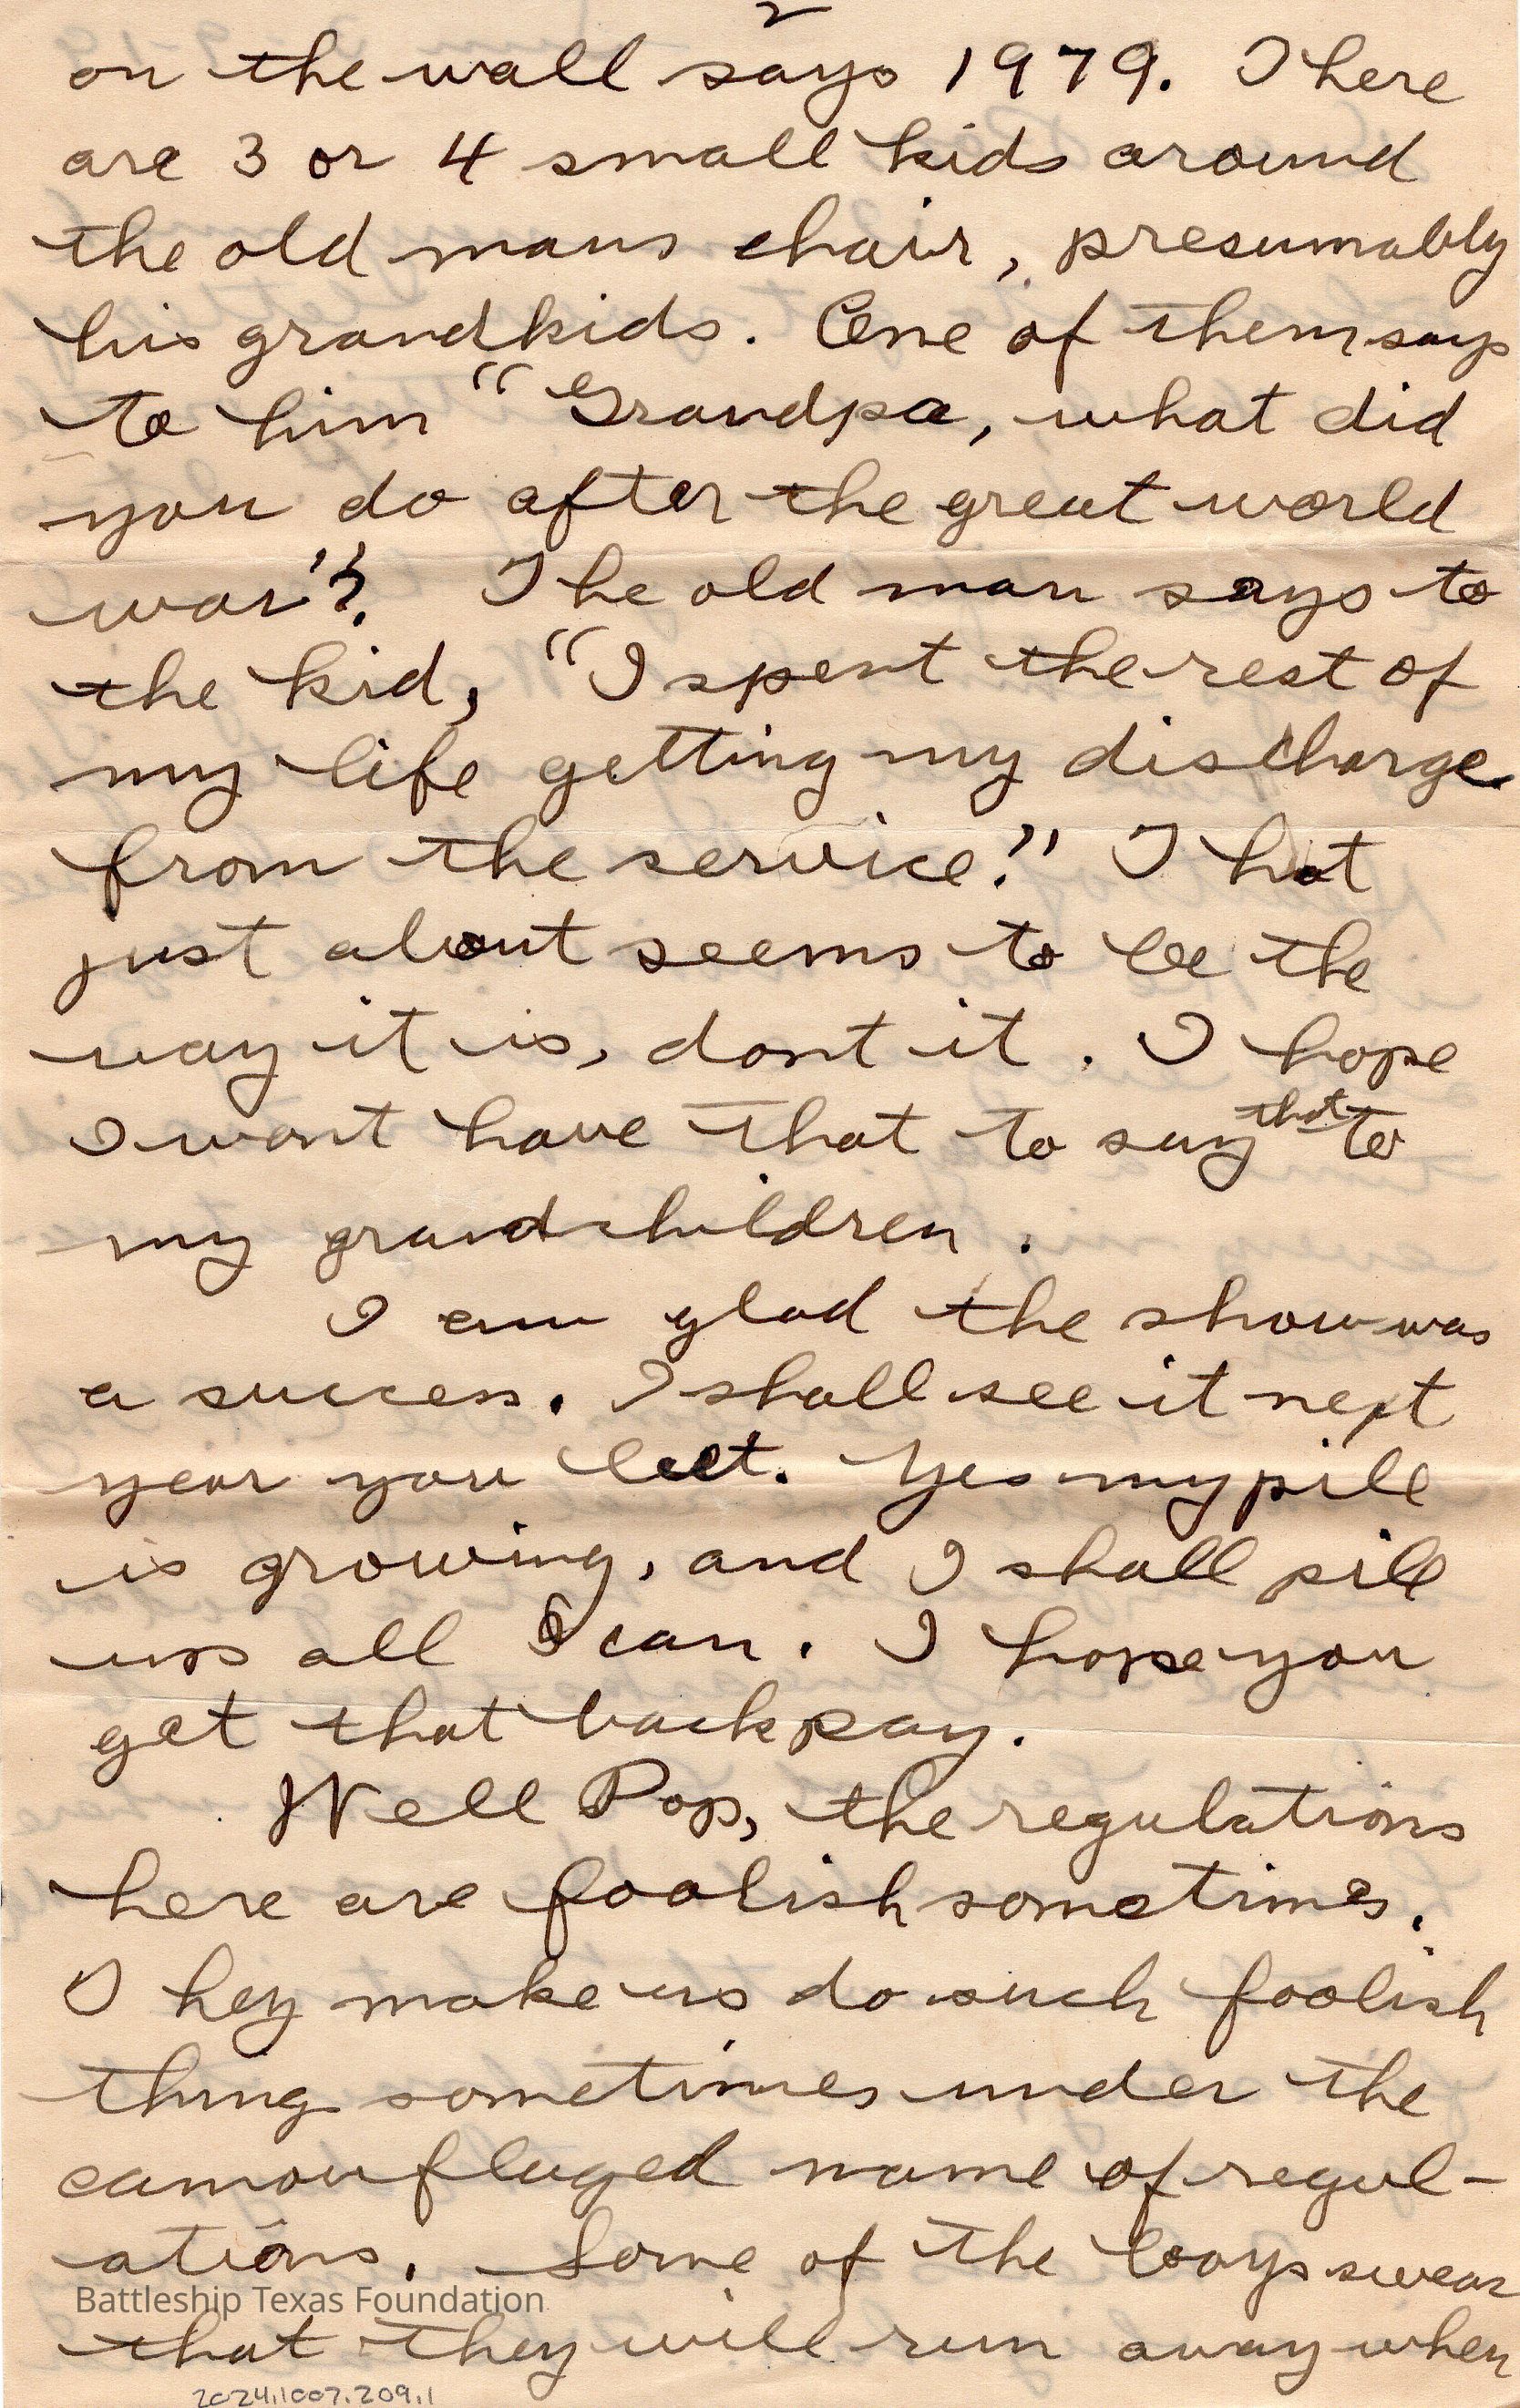 2
on the wall says 1979. There
are 3 or 4 small kids around
the old mans chair, presumably
his grandkids. One of them says
to him "Grandpa, what did
you do after the great world
war"? The old man says to
the kid, "I spent the rest of
my life getting my discharge
from the service!" That
just about seems to be the
way it is, dont it. I hope
I wont have that to say that to
my grandchildren.
I am glad the show was
a success. I shall see it next
year you bet. Yes my pile
is growing, and I shall pile
up all I can. I hope you
get that back pay.
Well Pop, the regulations
here are foolish sometimes.
They make us do such foolish
thing sometimes under the
camouflaged name of regul-
ations. Some of the boys swear
Battleship Texas Foundation
that they will run away when
2024.1007.209.1